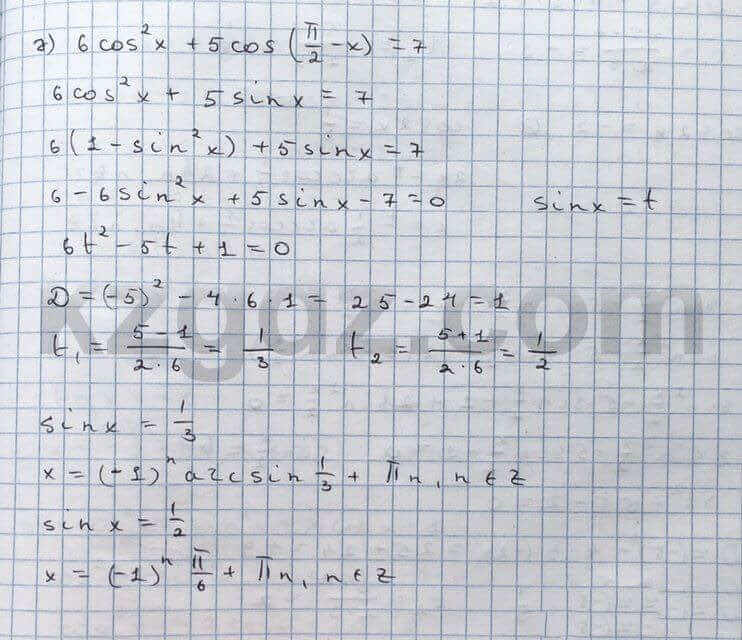 7) 6 cos²x + 5 cos (π/2 - x) = 7
6 cos²x + 5 sinx = 7
6(1 - sin²x) + 5 sinx = 7
6 - 6 sin²x + 5 sinx - 7 = 0 sinx = t
6t² - 5t + 1 = 0
D = (-5)² - 4 · 6 · 1 = 25 - 24 = 1
t₁ = (5 - 1)/(2 · 6) = 1/3 t₂ = (5 + 1)/(2 · 6) = 1/2
sinx = 1/3
x = (-1)ⁿ arcsin 1/3 + πn, n ∈ Z
sin x = 1/2
x = (-1)ⁿ π/6 + πn, n ∈ Z
kzgdz.com